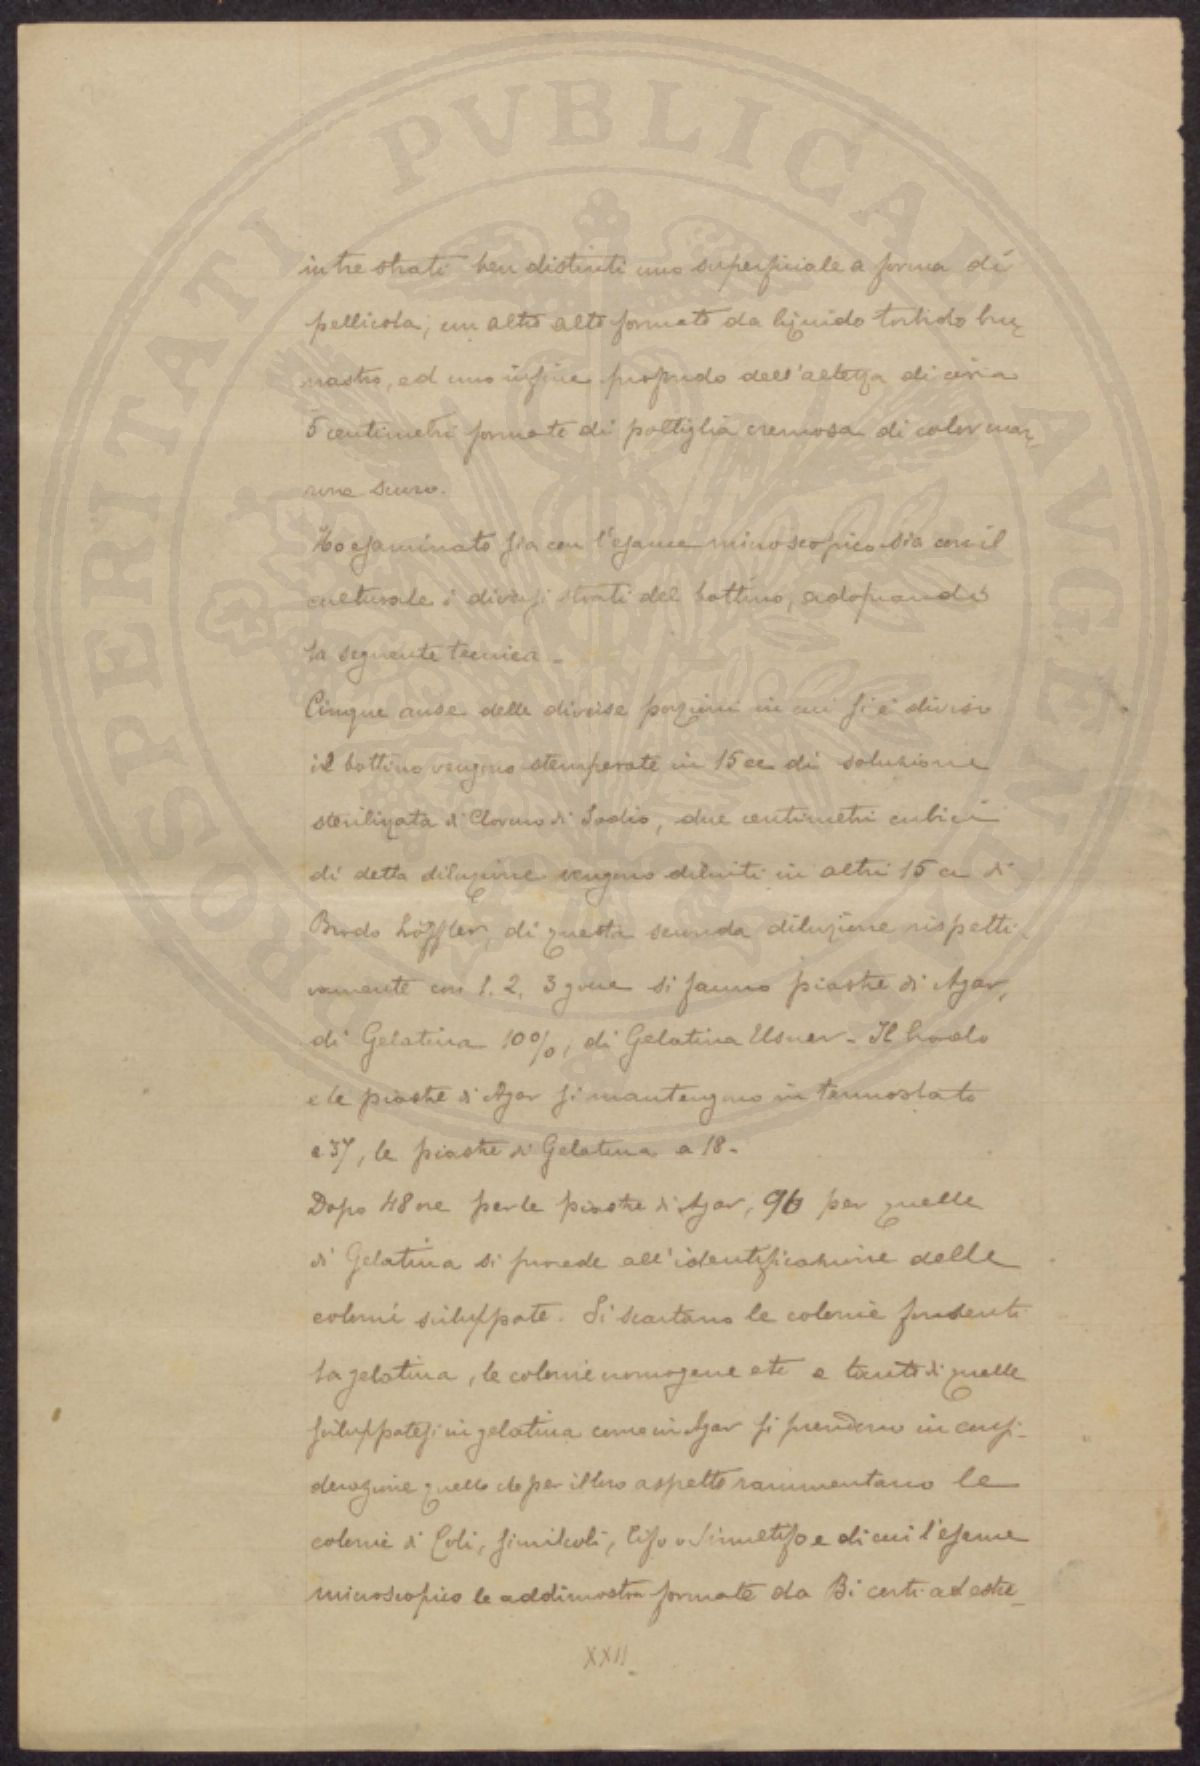 PROSPERITATI PVBLICAE AVGENDAE
in tre strati ben distinti uno superficiale a forma di
pellicola, un altro alto formato da liquido torbido bru-
nastro, ed uno infine profondo dell'altezza di circa
5 centimetri formato di poltiglia cremosa di color mar-
rone scuro.
Ho esaminato sia con l'esame microscopico sia con il
culturale i diversi strati del bottino, adoprando
la seguente tecnica -
Cinque anse delle diverse porzioni in cui si è diviso
il bottino vengono stemperate in 15 cc di soluzione
sterilizzata di Cloruro di Sodio, due centimetri cubici
di detta diluzione vengono diluiti in altri 15 cc di
Brodo Löffler, di questa seconda diluzione rispetti-
vamente con 1, 2, 3 gocce si fanno piastre di Agar,
di Gelatina 10%, di Gelatina Elsner - Il brodo
e le piastre di Agar si mantengono in termostato
a 37, le piastre di Gelatina a 18 -
Dopo 48 ore per le piastre di Agar, 96 per quelle
di Gelatina si procede all'identificazione delle
colonie sviluppate. Si scartano le colonie fondenti
la gelatina, le colonie cromogene etc e tanto di quelle
sviluppatesi in gelatina come in Agar si prendono in consi-
derazione quelle che per il loro aspetto rammentano le
colonie di Coli, similcoli, Tifo o Simeltifo e di cui l'esame
microscopico le addimostra formate da Bi corti ad estre-
XXII